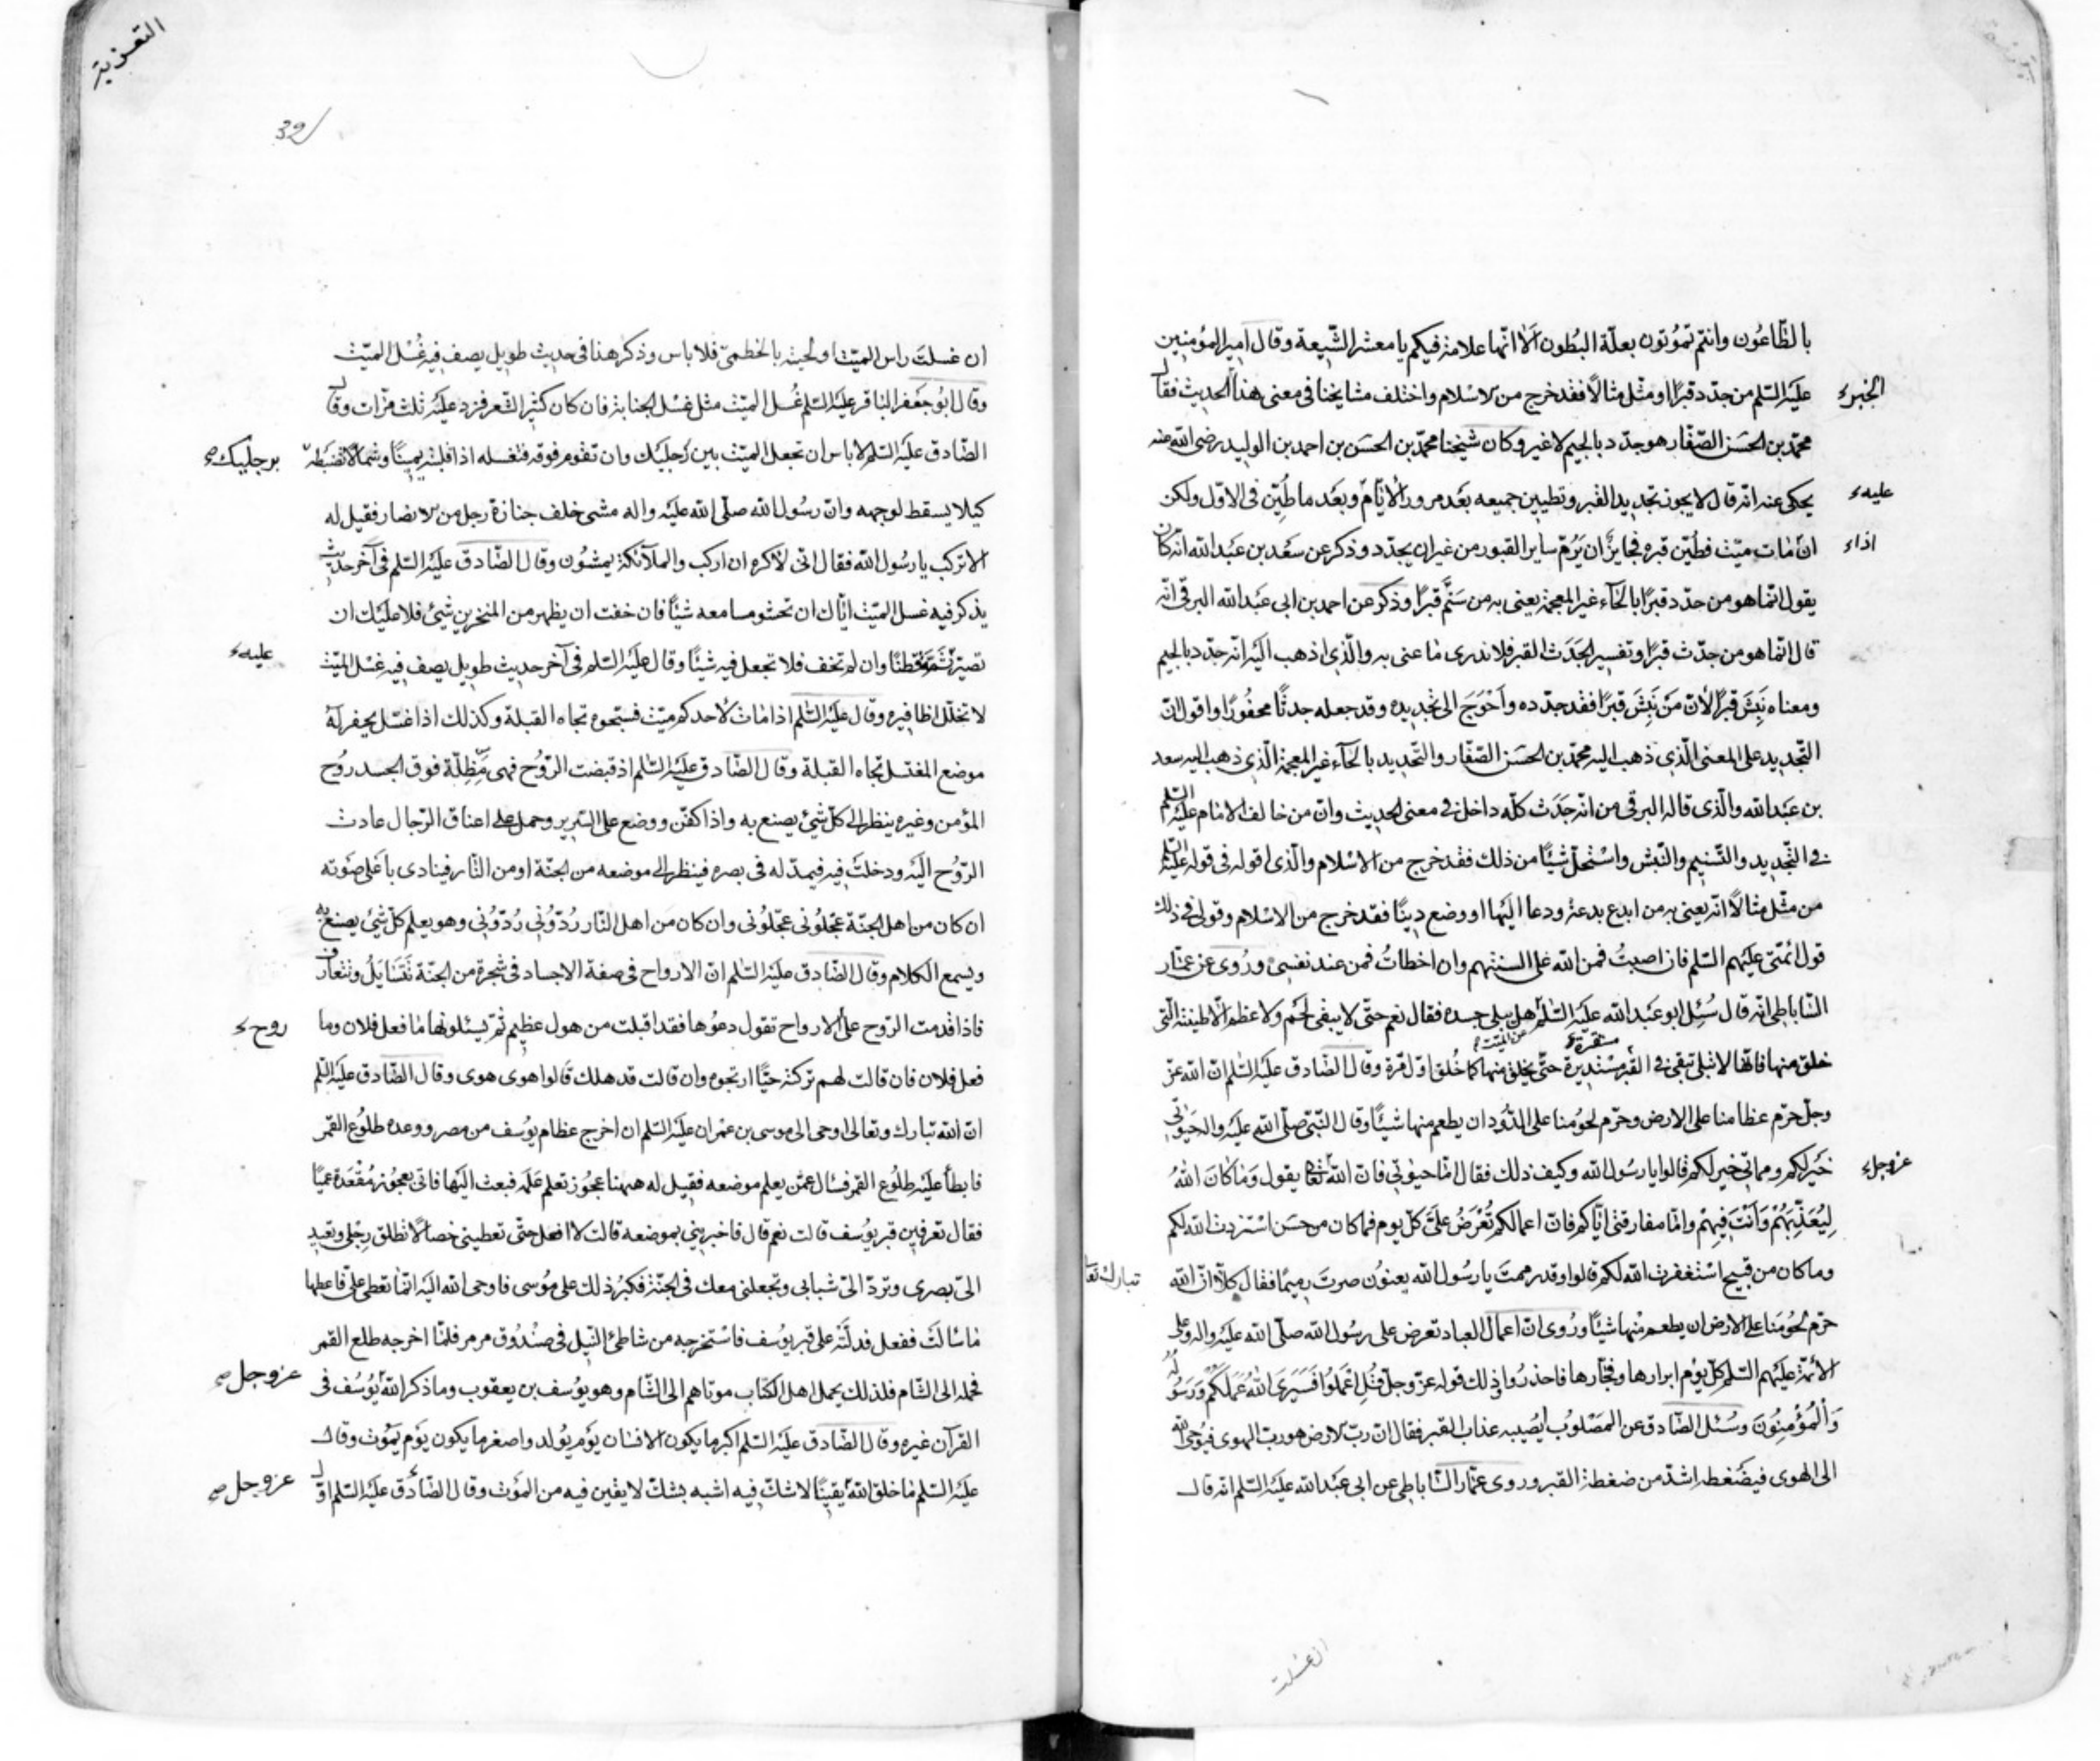 بالطّاعُون وانتم تموُتون بعلّة البُطون اَلا انّها علامة فيكم يا معشر الشّيعة وقال امير المؤمنين
عليَه السّلم من جدّد قبرًا او مثّل مثالًا فقد خرج من الاسْلام واختلف مشايخنا فى معنى هذا الحديث فقال
الخبر
محمّد بن الحسَن الصّفّار هو جدّد بالجيم لا غير وكان شيخنا محمّد بن الحسَن بن احمد بن الوليد رضى الله عنه
يحكى عنه انّه قال لا يجوز تجديد القبر وتطيين جميعه بعَد مرور الايّام وبعَد ما طُيّن فى الاوّل ولكن
عليه
ان مات ميّت فطُيّن قبره فجايز ان يَرُمّ ساير القبور من غير ان يجدّد وذكر عن سعَد بن عبَد الله انّه كان
اذا
يقول انّما هو من حدّد قبرًا بالحآء غير المعجمة يعنى به من سَنَّم قبرًا وذكر عن احمد بن ابى عبَد الله البرقى انّه
قال انّما هو من جدّث قبرًا وتفسير الجَدَث القبر فلا ندرى ما عنى به والّذى اذهب اليَه انّه جدّد بالجيم
ومعناه نَبِشَ قبرًا لانّ مَنْ نَبِشَ قبرًا فقد جدّده واَحْوَجَ الى تجديده وقد جعله جدثًا محفُورًا واقول انّ
التّجديد على المعنى الّذى ذهب اليه محمّد بن الحسَن الصّفّار والتّحديد بالحآء غير المعجمة الّذى ذهب اليه سعد
بن عبَد الله والّذى قاله البرقى من انّه جَدَث كلّه داخل فى معنى الحديث وانّ من خالف الامام عليَه السّلم
فى التّجديد والتّسنيم والنّبش واسْتحلّ شيئًا من ذلك فقد خرج من الاسْلام والّذى اقوله فى قوله عليَه السّلم
من مثّل مثالًا انّه يعنى به من ابدع بدعة ودعا اليَها او وضع دينًا فقد خرج من الاسْلام وقولى فى ذلك
قول ائمّتى عليَهم السّلم فان اصبتُ فمن الله على السنتهم وان اخطاتُ فمن عند نفسى ورُوى عن عمّار
السّاباطى انّه قال سُئِل ابو عبَد الله عليَه السّلم هل يبلى جسده فقال نعم حتّى لا يبقى لحم ولا عظم الّا طينته الّتى
عن الميّت
خلق منها فانّها لا تبلى تبقى فى القبر مسْتديرة حتّى يخلق منها كما خُلق اوّل مرّة وقال الصّادق عليَه السّلم انّ الله عزّ
وجلّ حرّم عظامنا على الارض وحرّم لحوُمنا على الدُّود ان يطعم منها شيئًا وقال النّبىّ صلّى الله عليَه واله حيَوٰتى
خَيرلكم ومماتى خير لكم قالوا يا رسُول الله وكيف ذلك فقال امّا حيوٰتى فانّ الله تعا يقول وَمٰا كٰانَ اللهُ
عز وجل
لِيُعَذِّبَهُمْ وَاَنْتَ فيهِمْ وامّا مفارقتى ايّاكم فانّ اعمالكم تُعْرَضُ علَىّ كلّ يوم فما كان من حسَن اسْتزدت الله لكم
وما كان من قبيح اسْتغفرت الله لكم قالوا وقد رممتَ يا رسُول الله يعنوُن صرتَ رميمًا فقال كلّا انّ الله
تبارك تعا
حرّم لحوُمَنا على الارض ان يطعم منها شيئًا ورُوى انّ اعمال العباد تعرض على رسُول الله صلّى الله عليَه واله وعلى
الائمّة عليَهم السّلم كلّ يوْم ابرارها وفجّارها فاحذرُوا وذلك قوله عزّ وجلّ وَقُلِ اعْمَلوُا فَسَيَرَى اللهُ عَمَلَكُمْ وَرَسُولُهُ
وَالْمُؤْمِنُونَ وسُئل الصّادق عن المصَلوُب يُصيبه عذاب القبر فقال انّ ربّ الارض هو ربّ الهوى فيُوحى الله
الى الهوى فيضَغطه اشدّ من ضغطة القبر وروى عمّار السّاباطى عن ابى عبَد الله عليَه السّلم انّه قال
ان غسلت
التعزية
39
ان غسلتَ راس الميّت ولحيته بالخطمىّ فلا باس وذكر هذا فى حديث طويل يصف فيه غُسْل الميّت
وقال ابُو جعَفر الباقر عليَه السّلم غُسل الميّت مثل غسْل الجنابة فان كان كثير الشّعر فزد عليَه ثلث مرّات وقال
الصّادق عليَه السّلم لا باس ان تجعل الميّت بين رُجليَك وان تقوم فوقه فتغسله اذا قلبته يمينًا وشمالًا تضبطه
برجليك
كيلا يسقط لوجهه وانّ رسُول الله صلّى الله عليَه واله مشى خلف جنازة رجل من الانصار فقيل له
الا تركب يا رسُول الله فقال انّى لاكره ان اركب والملآئكة يمشوُن وقال الصّادق عليَه السّلم فى آخر حديث
يذكر فيه غسل الميّت ايّاك ان تحشو مسامعه شيئًا فان خفت ان يظهر من المنخرين شيئ فلا عليَك ان
تصيّر ثَمّة قطنًا وان لم تخف فلا تجعل فيه شيئًا وقال عليَه السّلم فى آخر حديث طويل يصف فيه غسْل الميّت
عليه
لا تخلّل اظافيره وقال عليَه السّلم اذا مات لاحدكم ميّت فسجّوه تجاه القبلة وكذلك اذا غسّل يحفر له
موضع المغتسل تجاه القبلة وقال الصّادق عليَه السّلم اذ قبضت الرّوُح فهى مُظِلّة فوق الجسد روُح
المؤمن وغيره ينظر الى كلّ شيئ يصنع به واذا كفّن ووضع على السّرير وحمل على اعناق الرّجال عادت
الرّوُح اليَه ودخلتَ فيه فيمدّ له فى بصره فينظر الى موضعه من الجنّة او من النّار فينادى باعَلى صوَته
ان كان من اهل الجنّة عجّلوُنى عجّلوُنى وان كان من اهل النّار رُدّوُنى رُدّوُنى وهو يعلم كلّ شيئ يصنع به
ويسمع الكلام وقال الصّادق عليَه السّلم انّ الارواح فى صفة الاجساد فى شجرة من الجنّة تَتَسٰايَلُ وتتعارف
فاذا قدمت الرّوح على الارواح تقول دعوُها فقد اقبلت من هول عظيم ثمّ يسئلونها ما فعل فلان وما
روح
فعل فلان فان قالت لهم تركته حيًّا ارتجوه وان قالت قد هلك قالوا هوى هوى وقال الصّادق عليَه السّلم
انّ الله تبارك وتعالى اوحى الى موسى بن عمْران عليَه السّلم ان اخرج عظام يوُسف من مصر ووعده طلوُع القمر
فابطأ عليَه طلوُع القمر فسال عمّن يعلم موضعه فقيل له ههنا عجوُز تعلم علَمه فبعث اليَها فاتى بعجوُز مُقْعَدة عميًا
فقال تعرفين قبر يوُسف قالت نعم قال فاخبرينى بموضعه قالت لا افعل حتّى تعطينى خصالًا تطلق رِجْلى وتعيد
الىّ بصرى وتردّ الىّ شبابى وتجعلنى معك فى الجنّة فكبُر ذلك على موُسى فاوحى الله اليَه انّما تعطى علىّ فاعطها
ما سالتَ ففعل فدلّتَه على قبر يوُسف فاسْتخرجه من شاطئ النّيل فى صنْدُوق مرمر فلمّا اخرجه طلع القمر
فحمله الى الشّام فلذلك يحمل اهل الكتاب موتاهم الى الشّام وهو يوُسف بن يعقوب وما ذكر الله يوُسُف فى
عز وجل
القرآن غيره وقال الصّادق عليَه السّلم اكبر ما يكون الانسان يوَم يوُلد واصغر ما يكون يوَم يموُت وقال
عليَه السّلم ما خلق الله يقينًا لا شكّ فيه اشبه بشكّ لا يقين فيه من الموَت وقال الصّادق عليَه السّلم اوّل
عز وجل